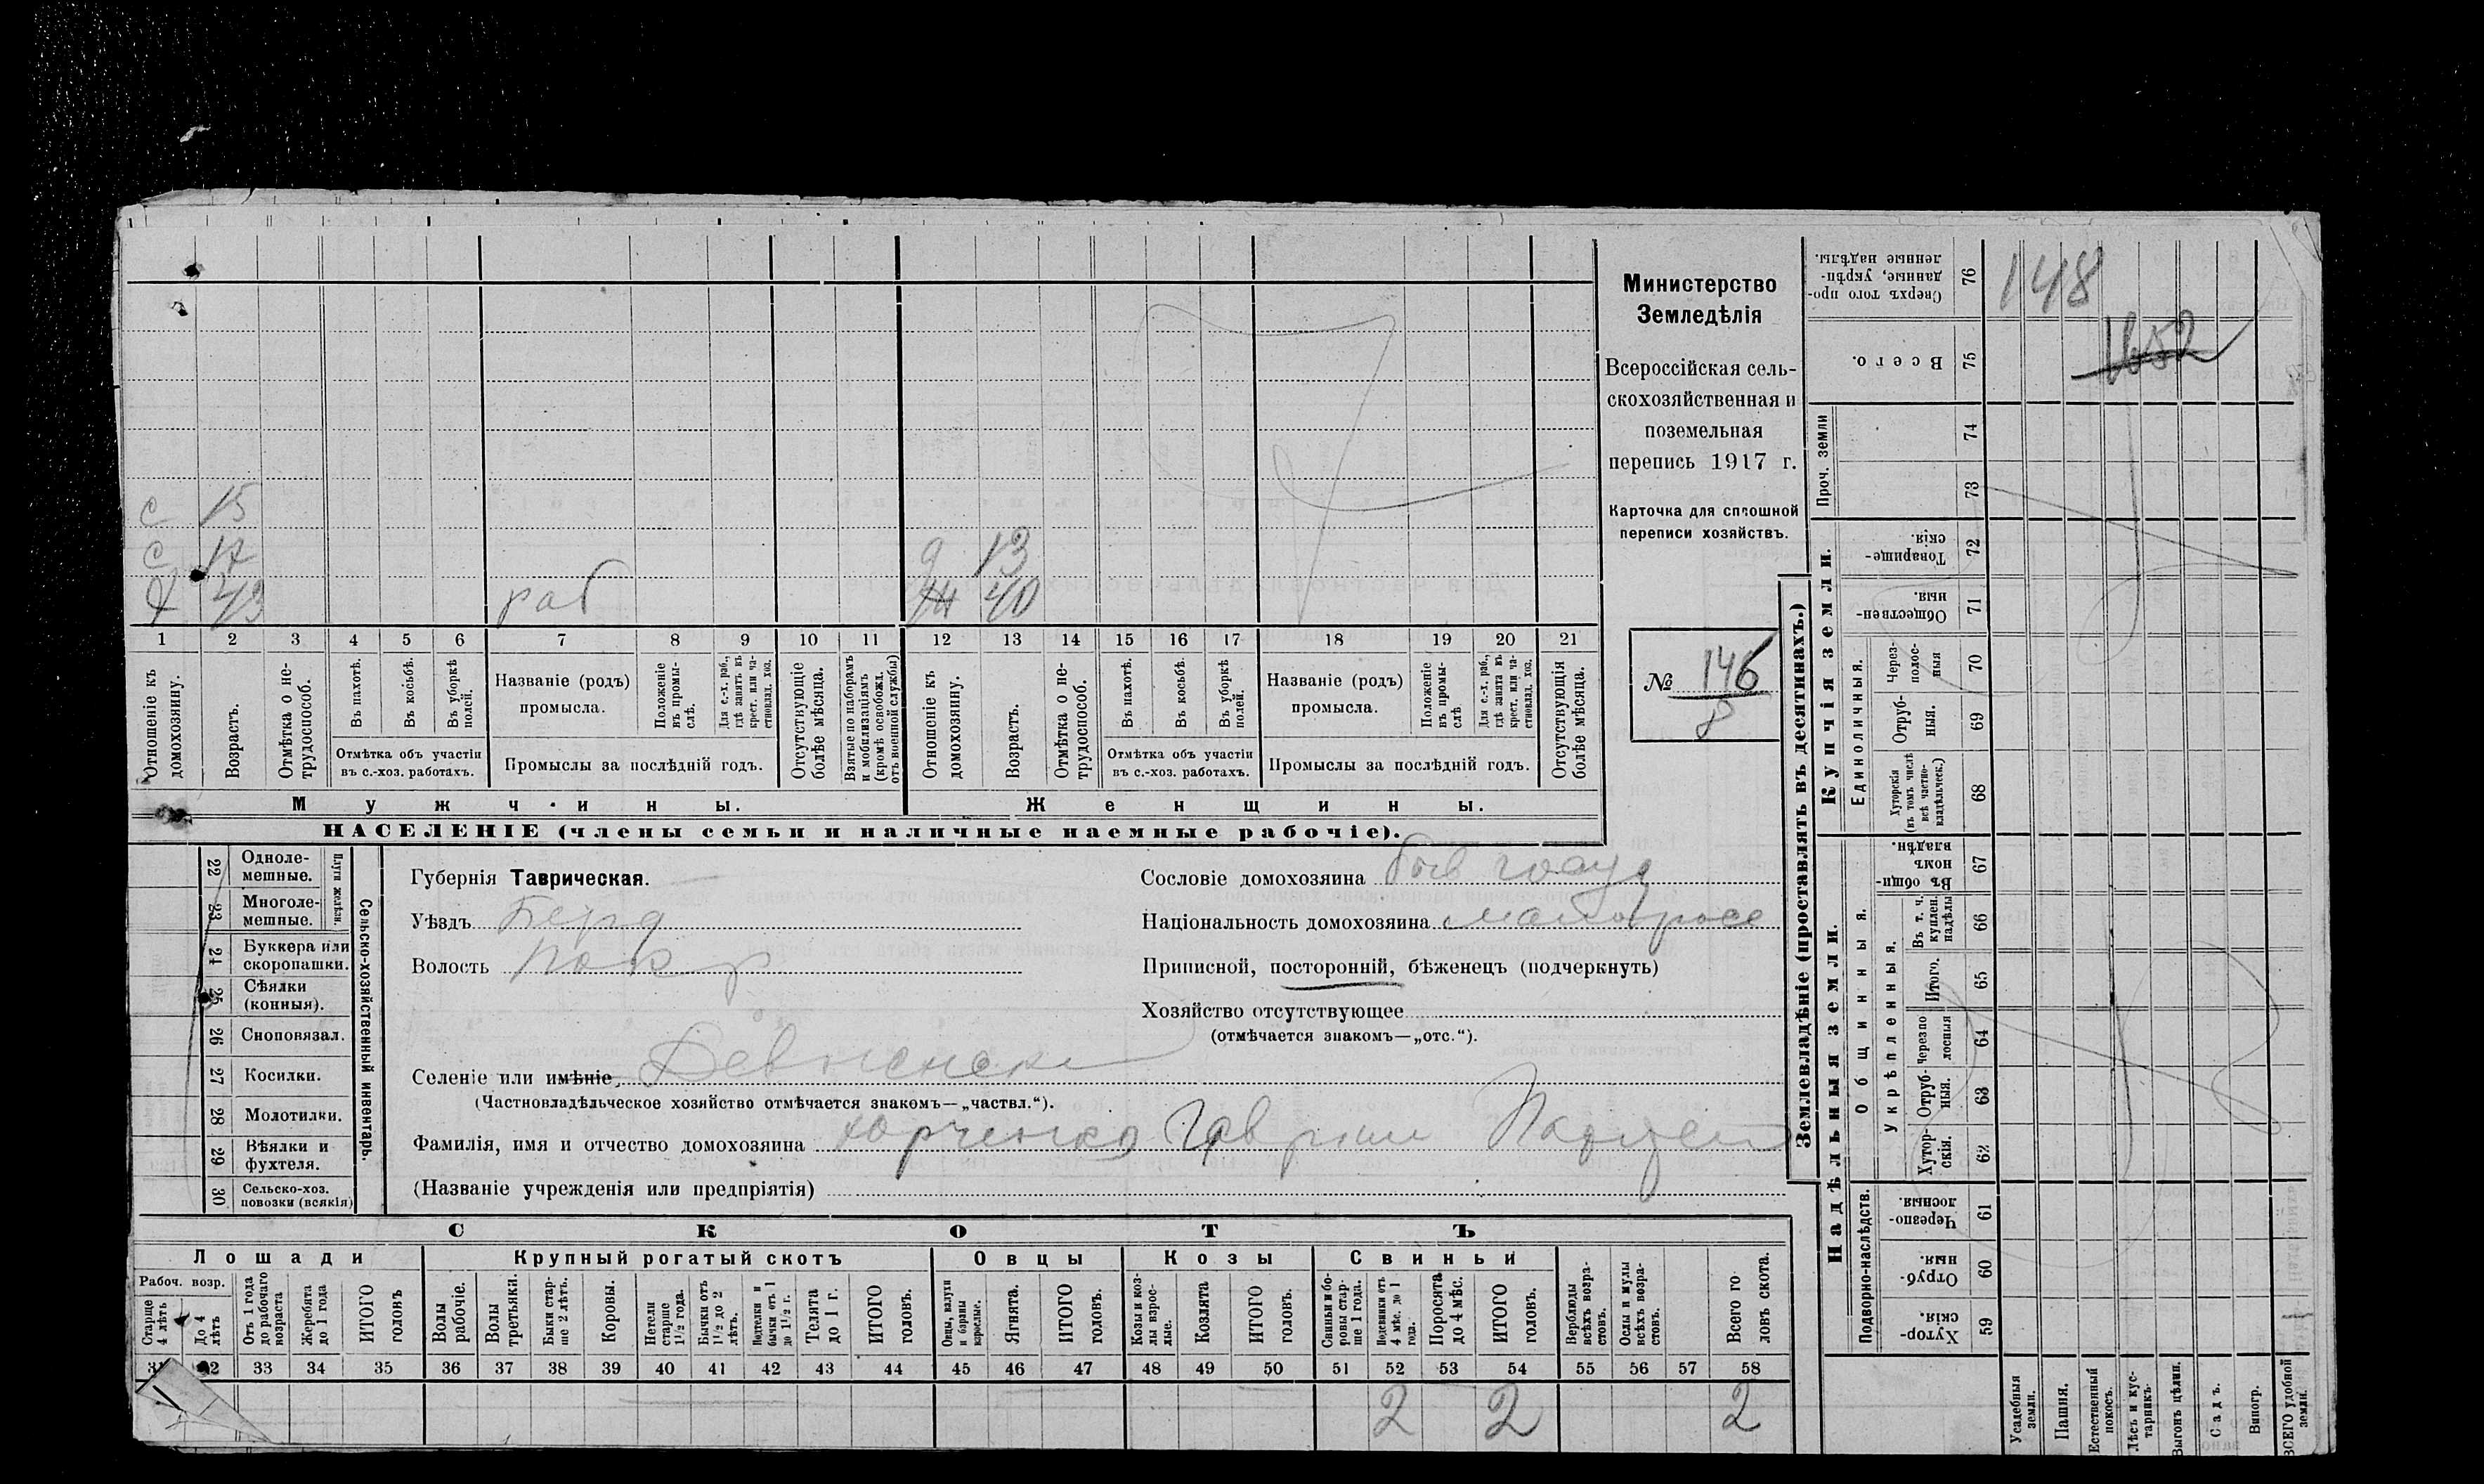 с 15
с 17
х 43 раб
д 13
ж 40
1 2 3 4 5 6 7 8 9 10 11 12 13 14 15 16 17 18 19 20 21
Отношеніе къ домохозяину.
Возрастъ.
Отмѣтка о не-
трудоспособ.
Въ пахотѣ.
Въ косьбѣ.
Въ уборкѣ полей.
Отмѣтка объ участіи
въ с.-хоз. работахъ.
Названіе (родъ)
промысла.
Положеніе
въ промы-
слѣ.
Для с.-х. раб.,
гдѣ занятъ въ
крест. или ча-
стновлад. хоз.
Промыслы за послѣдній годъ.
Отсутствующіе
болѣе мѣсяца.
Взятые по наборамъ
и мобилизаціямъ
(кромѣ освобожд.
отъ военной службы)
Отношеніе къ
домохозяину.
Возрастъ.
Отмѣтка о не-
трудоспособ.
Въ пахотѣ.
Въ косьбѣ.
Въ уборкѣ
полей.
Отмѣтка объ участіи
въ с.-хоз. работахъ.
Названіе (родъ)
промысла.
Положеніе
въ промы-
слѣ
Для с.-х. раб.,
гдѣ занята въ
крест. или ча-
стновлад. хоз.
Промыслы за послѣдній годъ.
Отсутствующія
болѣе мѣсяца.
Мужчины.
Женщины.
НАСЕЛЕНІЕ (члены семьи и наличные наемные рабочіе).
Министерство
Земледѣлія
Всероссійская сель-
скохозяйственная и
поземельная
перепись 1917 г.
Карточка для сплошной
переписи хозяйствъ.
№ 146
8
22 Одноле-
мешные.
23 Многоле-
мешные.
Плуги желѣзн.
24 Буккера или
скоропашки.
25 Сѣялки
(конныя).
26 Сноповязал.
27 Косилки.
28 Молотилки.
29 Вѣялки и
фухтеля.
30 Сельско-хоз.
повозки (всякія)
Сельско-хозяйственный инвентарь.
Губернія Таврическая.
Уѣздъ Берд
Волость Покр
Селеніе или имѣніе
(Частновладѣльческое хозяйство отмѣчается знакомъ—„частвл.“).
Фамилія, имя и отчество домохозяина Юрченко Гаврил
(Названіе учрежденія или предпріятія)
Сословіе домохозяина быв госуд
Національность домохозяина малоросс
Приписной, посторонній, бѣженецъ (подчеркнуть)
Хозяйство отсутствующее
(отмѣчается знакомъ—„отс.“).
СКОТЪ
Лошади
Крупный рогатый скотъ
Овцы
Козы
Свиньи
Рабоч. возр.
Старше
4 лѣтъ
До 4
лѣтъ
Отъ 1 года
до рабочаго
возраста
Жеребята
до 1 года
ИТОГО
головъ
Волы
рабочіе.
Волы
третьяки.
Быки стар-
ше 2 лѣтъ.
Коровы.
Нетели
старше
1½ года.
Бычки отъ
1½ до 2
лѣтъ.
Подтелки и
бычки отъ 1
до 1½ г.
Телята
до 1 г.
ИТОГО
головъ.
Овцы, валухи
и бараны
взрослые.
Ягнята.
ИТОГО
головъ.
Козы и коз-
лы взрос-
лые.
Козлята
ИТОГО
головъ.
Свиньи и бо-
ровы стар-
ше 1 года.
Подсвинки отъ
4 мѣс. до 1
года.
Поросята
до 4 мѣс.
ИТОГО
головъ.
Верблюды
всѣхъ возра-
стовъ.
Ослы и мулы
всѣхъ возра-
стовъ.
Всего го
ловъ скота.
31 32 33 34 35 36 37 38 39 40 41 42 43 44 45 46 47 48 49 50 51 52 53 54 55 56 57 58
2 2 2
Землевладѣніе (проставлять въ десятинахъ.)
148
1652
Сверхъ того про-
данные, укрѣп-
ленные надѣлы.
76
Всего.
75
Проч. земли
74
73
Купчія земли.
Товарище-
скія.
72
Обществен-
ныя.
71
Единоличныя.
Через-
полос-
ныя
70
Отруб-
ныя.
69
Хуторскія
(въ томъ числѣ
всѣ частно-
владѣльческ.)
68
Надѣльныя земли.
Общинныя.
Въ общи-
номъ
владѣн.
67
Укрѣпленныя.
Въ т. ч.
куплен.
надѣлы
66
Итого.
65
Черезпо
лосныя
64
Отруб-
ныя.
63
Хутор-
скія.
62
Подворно-наслѣдств.
Черезпо-
лосныя.
61
Отруб-
ныя.
60
Хутор-
скія.
59
Усадебныя
земли.
Пашня.
Естественный
покосъ.
Лѣсъ и кус-
тарникъ.
Выгонъ цѣлин.
Садъ.
Виногр.
ВСЕГО удобной
земли.